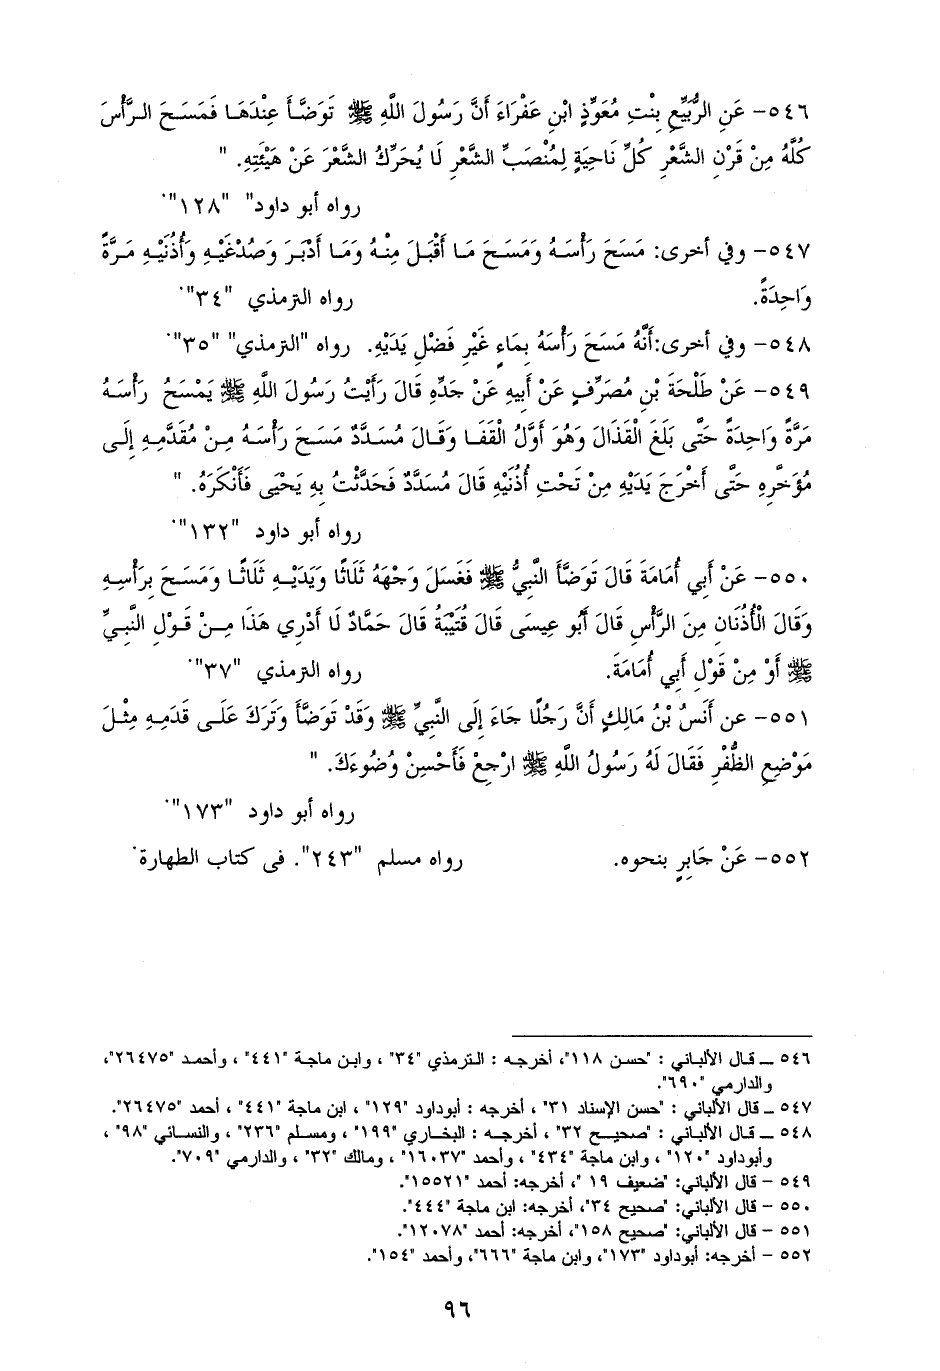 ٥٤٦- عَنِ الرُّبَيِّعِ بِنْتِ مُعَوِّذٍ ابْنِ عَفْرَاءَ أَنَّ رَسُولَ اللَّهِ ﷺ تَوَضَّأَ عِنْدَهَا فَمَسَحَ الرَّأْسَ
كُلَّهُ مِنْ قَرْنِ الشَّعْرِ كُلِّ نَاحِيَةٍ لِمُنْصَبِّ الشَّعْرِ لَا يُحَرِّكُ الشَّعْرَ عَنْ هَيْئَتِهِ. "
رواه أبو داود" "١٢٨".
٥٤٧- وفي أخرى: مَسَحَ رَأْسَهُ وَمَسَحَ مَا أَقْبَلَ مِنْهُ وَمَا أَدْبَرَ وَصُدْغَيْهِ وَأُذُنَيْهِ مَرَّةً
وَاحِدَةً. رواه الترمذي "٣٤".
٥٤٨- وفي أخرى:أَنَّهُ مَسَحَ رَأْسَهُ بِمَاءٍ غَيْرِ فَضْلِ يَدَيْهِ. رواه "الترمذي" "٣٥".
٥٤٩- عَنْ طَلْحَةَ بْنِ مُصَرِّفٍ عَنْ أَبِيهِ عَنْ جَدِّهِ قَالَ رَأَيْتُ رَسُولَ اللَّهِ ﷺ يَمْسَحُ رَأْسَهُ
مَرَّةً وَاحِدَةً حَتَّى بَلَغَ الْقَذَالَ وَهُوَ أَوَّلُ الْقَفَا وَقَالَ مُسَدَّدٌ مَسَحَ رَأْسَهُ مِنْ مُقَدَّمِهِ إِلَى
مُؤَخَّرِهِ حَتَّى أَخْرَجَ يَدَيْهِ مِنْ تَحْتِ أُذُنَيْهِ قَالَ مُسَدَّدٌ فَحَدَّثْتُ بِهِ يَحْيَى فَأَنْكَرَهُ. "
رواه أبو داود "١٣٢".
٥٥٠- عَنْ أَبِي أُمَامَةَ قَالَ تَوَضَّأَ النَّبِيُّ ﷺ فَغَسَلَ وَجْهَهُ ثَلَاثًا وَيَدَيْهِ ثَلَاثًا وَمَسَحَ بِرَأْسِهِ
وَقَالَ الْأُذُنَانِ مِنَ الرَّأْسِ قَالَ أَبُو عِيسَى قَالَ قُتَيْبَةُ قَالَ حَمَّادٌ لَا أَدْرِي هَذَا مِنْ قَوْلِ النَّبِيِّ
ﷺ أَوْ مِنْ قَوْلِ أَبِي أُمَامَةَ. رواه الترمذي "٣٧".
٥٥١- عن أَنَسُ بْنُ مَالِكٍ أَنَّ رَجُلًا جَاءَ إِلَى النَّبِيِّ ﷺ وَقَدْ تَوَضَّأَ وَتَرَكَ عَلَى قَدَمِهِ مِثْلَ
مَوْضِعِ الظُّفْرِ فَقَالَ لَهُ رَسُولُ اللَّهِ ﷺ ارْجِعْ فَأَحْسِنْ وُضُوءَكَ. "
رواه أبو داود "١٧٣".
٥٥٢- عَنْ جَابِرٍ بنحوه. رواه مسلم "٢٤٣". فى كتاب الطهارة.
٥٤٦ ـ قال الألباني : "حسن ١١٨"، أخرجه : الترمذي "٣٤" ، وابن ماجة "٤٤١" ، وأحمد "٢٦٤٧٥"،
والدارمي "٦٩٠".
٥٤٧ ـ قال الألباني : "حسن الإسناد ٣١" ، أخرجه : أبوداود "١٢٩" ، ابن ماجة "٤٤١" ، أحمد "٢٦٤٧٥".
٥٤٨ ـ قال الألباني : "صحيح ٣٢" ، أخرجه : البخاري "١٩٩" ، ومسلم "٢٣٦" ، والنسائي "٩٨" ،
وأبوداود "١٢٠" ، وابن ماجة "٤٣٤" ، وأحمد "١٦٠٣٧" ، ومالك "٣٢" ، والدارمي "٧٠٩".
٥٤٩ - قال الألباني: "ضعيف ١٩ "، أخرجه: أحمد "١٥٥٢١".
٥٥٠ - قال الألباني: "صحيح ٣٤"، أخرجه: ابن ماجة "٤٤٤".
٥٥١ - قال الألباني: "صحيح ١٥٨"، أخرجه: أحمد "١٢٠٧٨".
٥٥٢ - أخرجه: أبوداود "١٧٣"، وابن ماجة "٦٦٦"، وأحمد "١٥٤".
٩٦